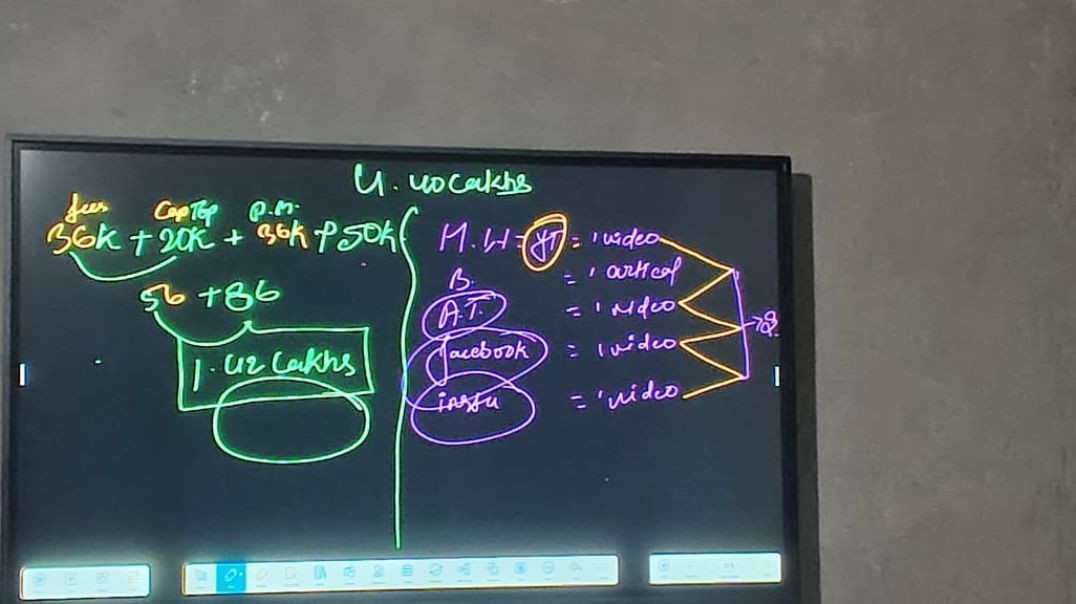 4.40 Lakhs
fees LapTop P.M.
36k + 20k + 36k + 50k
56 + 86
1.42 Lakhs
M.W = YT = 1 video
B. = 1 artical
A.T. = 1 video
facebook = 1 video
insta = 1 video